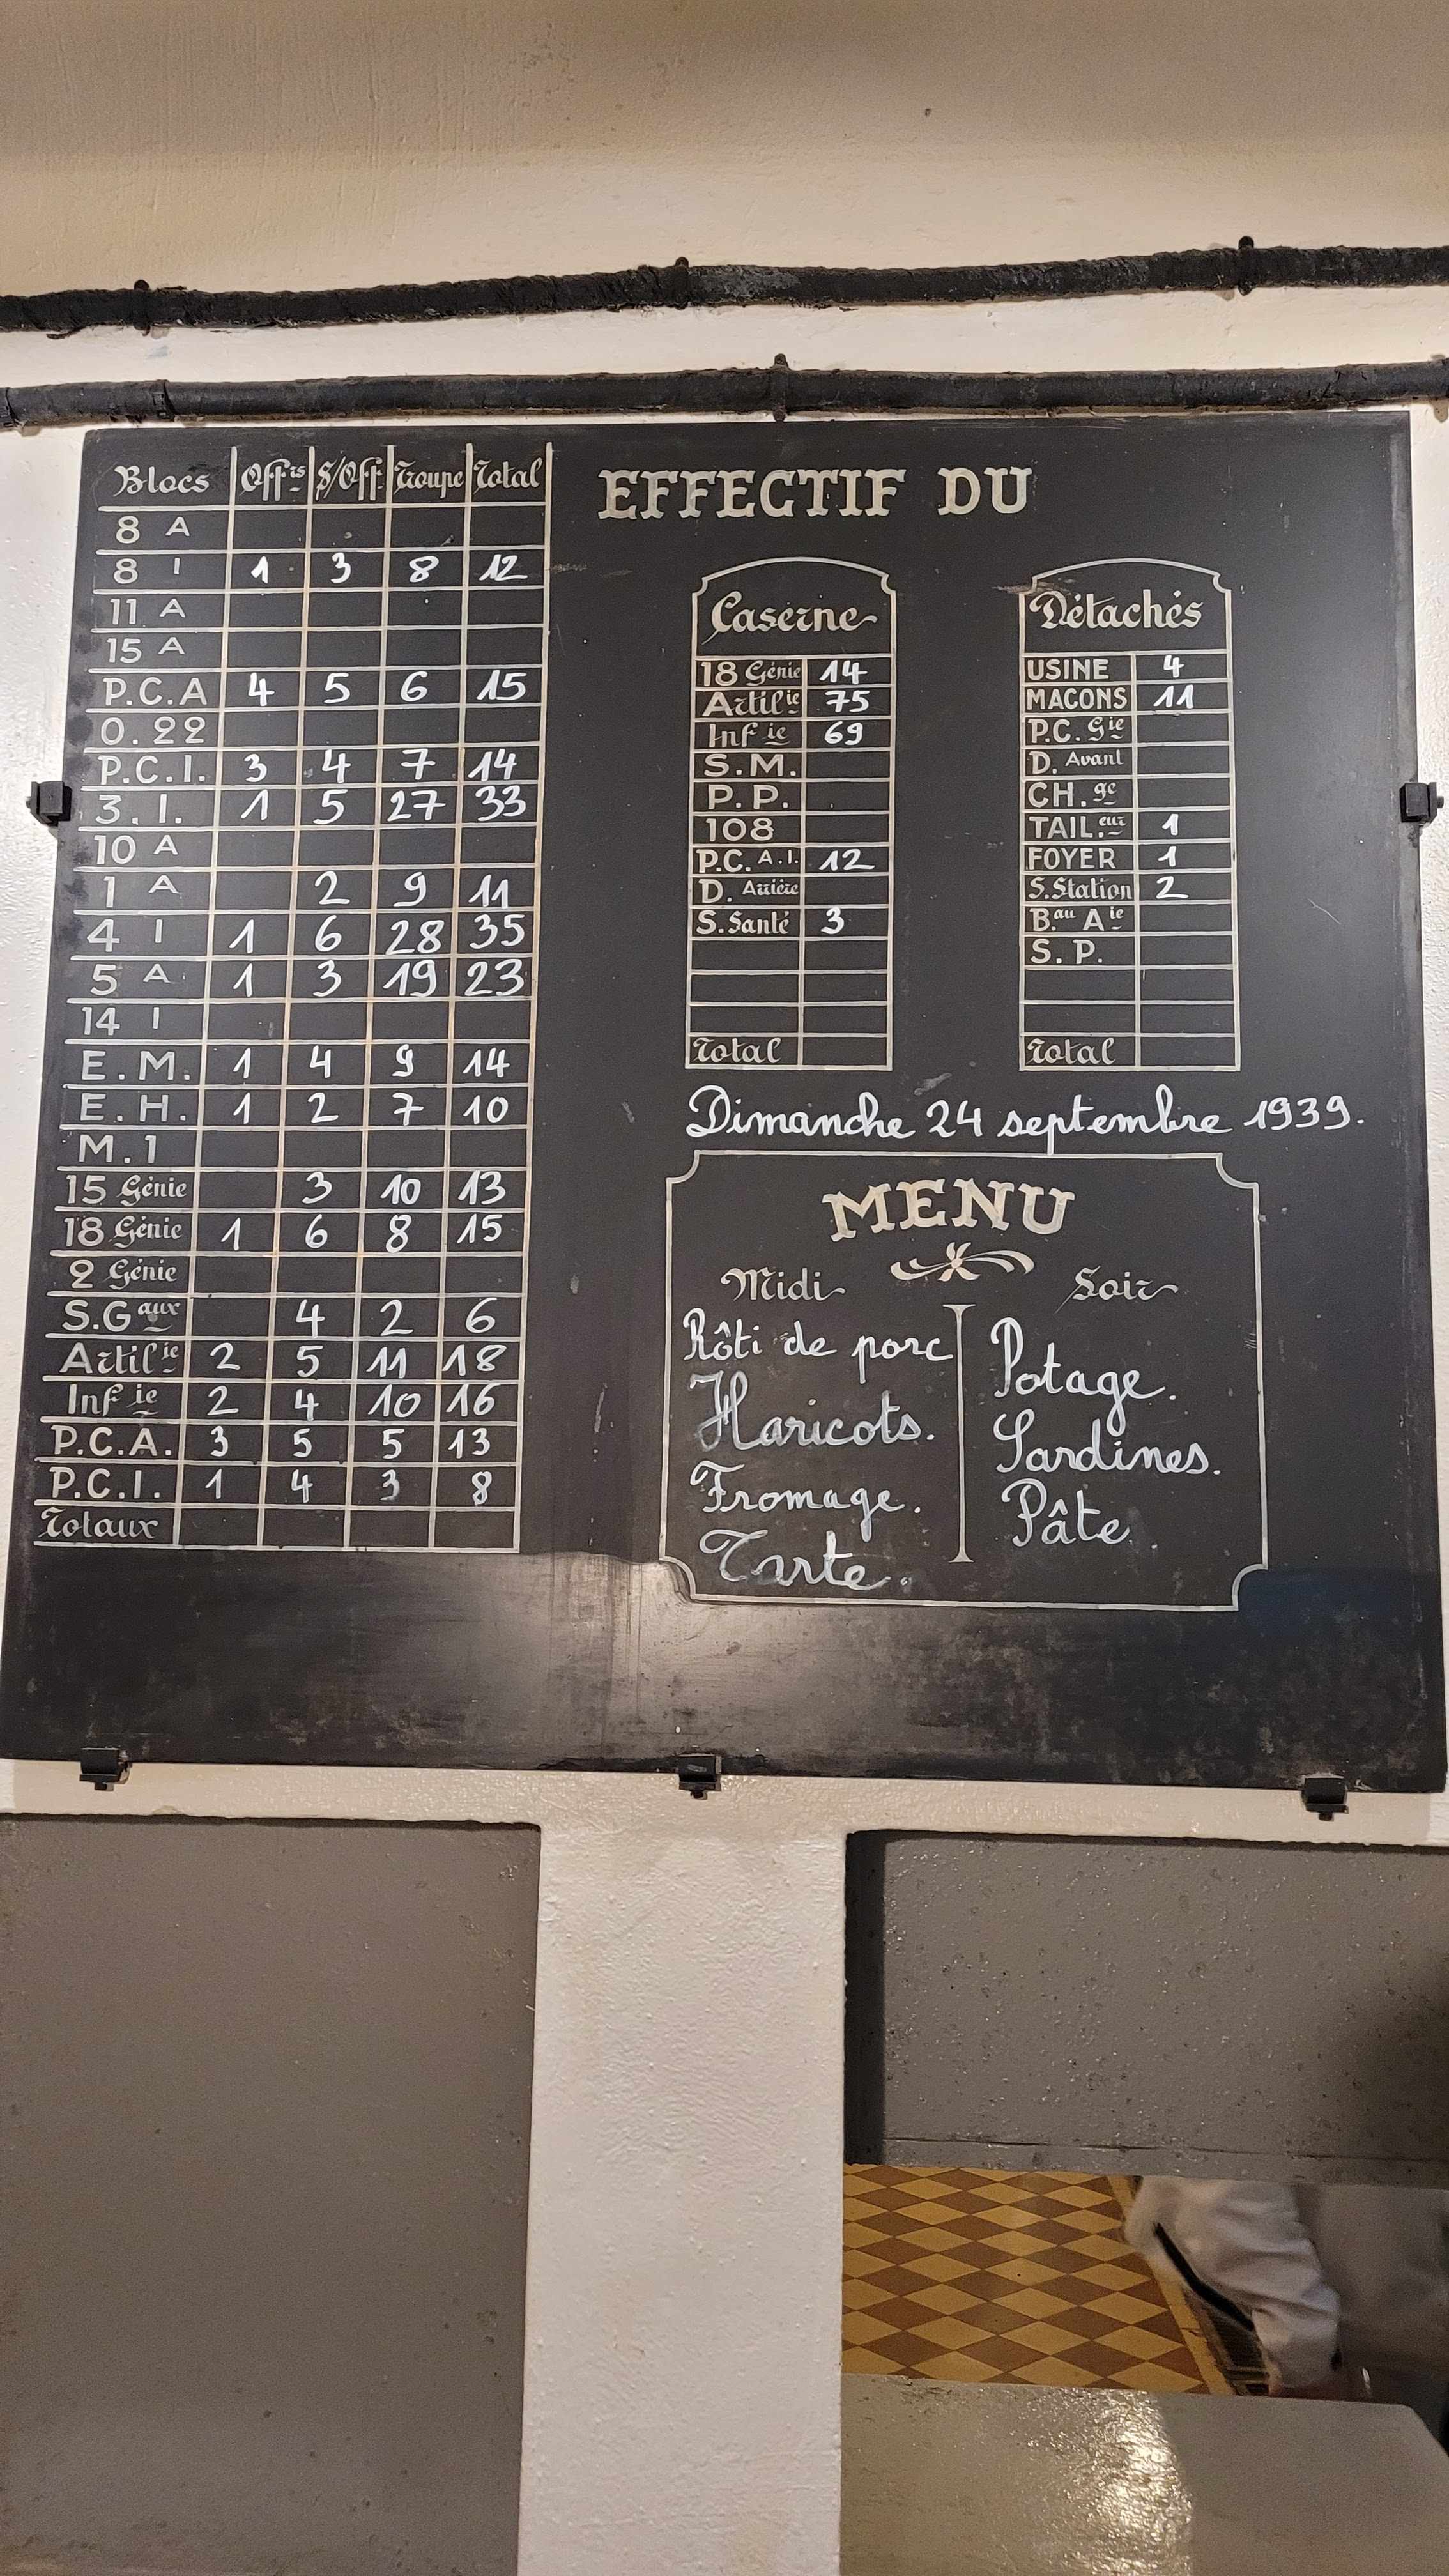 Blocs Offrs S/Off Troupe Total
8 A
8 I 1 3 8 12
11 A
15 A
P.C.A 4 5 6 15
O.22
P.C.I. 3 4 7 14
3.I. 1 5 27 33
10 A
1 A 2 9 11
4 I 1 6 28 35
5 A 1 3 19 23
14 I
E.M. 1 4 9 14
E.H. 1 2 7 10
M.1
15 Génie 3 10 13
18 Génie 1 6 8 15
2 Génie
S.Gaux 4 2 6
Artilie 2 5 11 18
Infie 2 4 10 16
P.C.A. 3 5 5 13
P.C.I. 1 4 3 8
Totaux
EFFECTIF DU
Caserne
18 Génie 14
Artilie 75
Infie 69
S.M.
P.P.
108
P.C. A.I. 12
D. Arrière
S.Santé 3
Total
Détachés
USINE 4
MACONS 11
P.C. Gie
D. Avant
CH.ge
TAIL.eur 1
FOYER 1
S.Station 2
Bau Aie
S.P.
Total
Dimanche 24 septembre 1939.
MENU
Midi
Rôti de porc
Haricots.
Fromage.
Tarte.
Soir
Potage.
Sardines.
Pâte